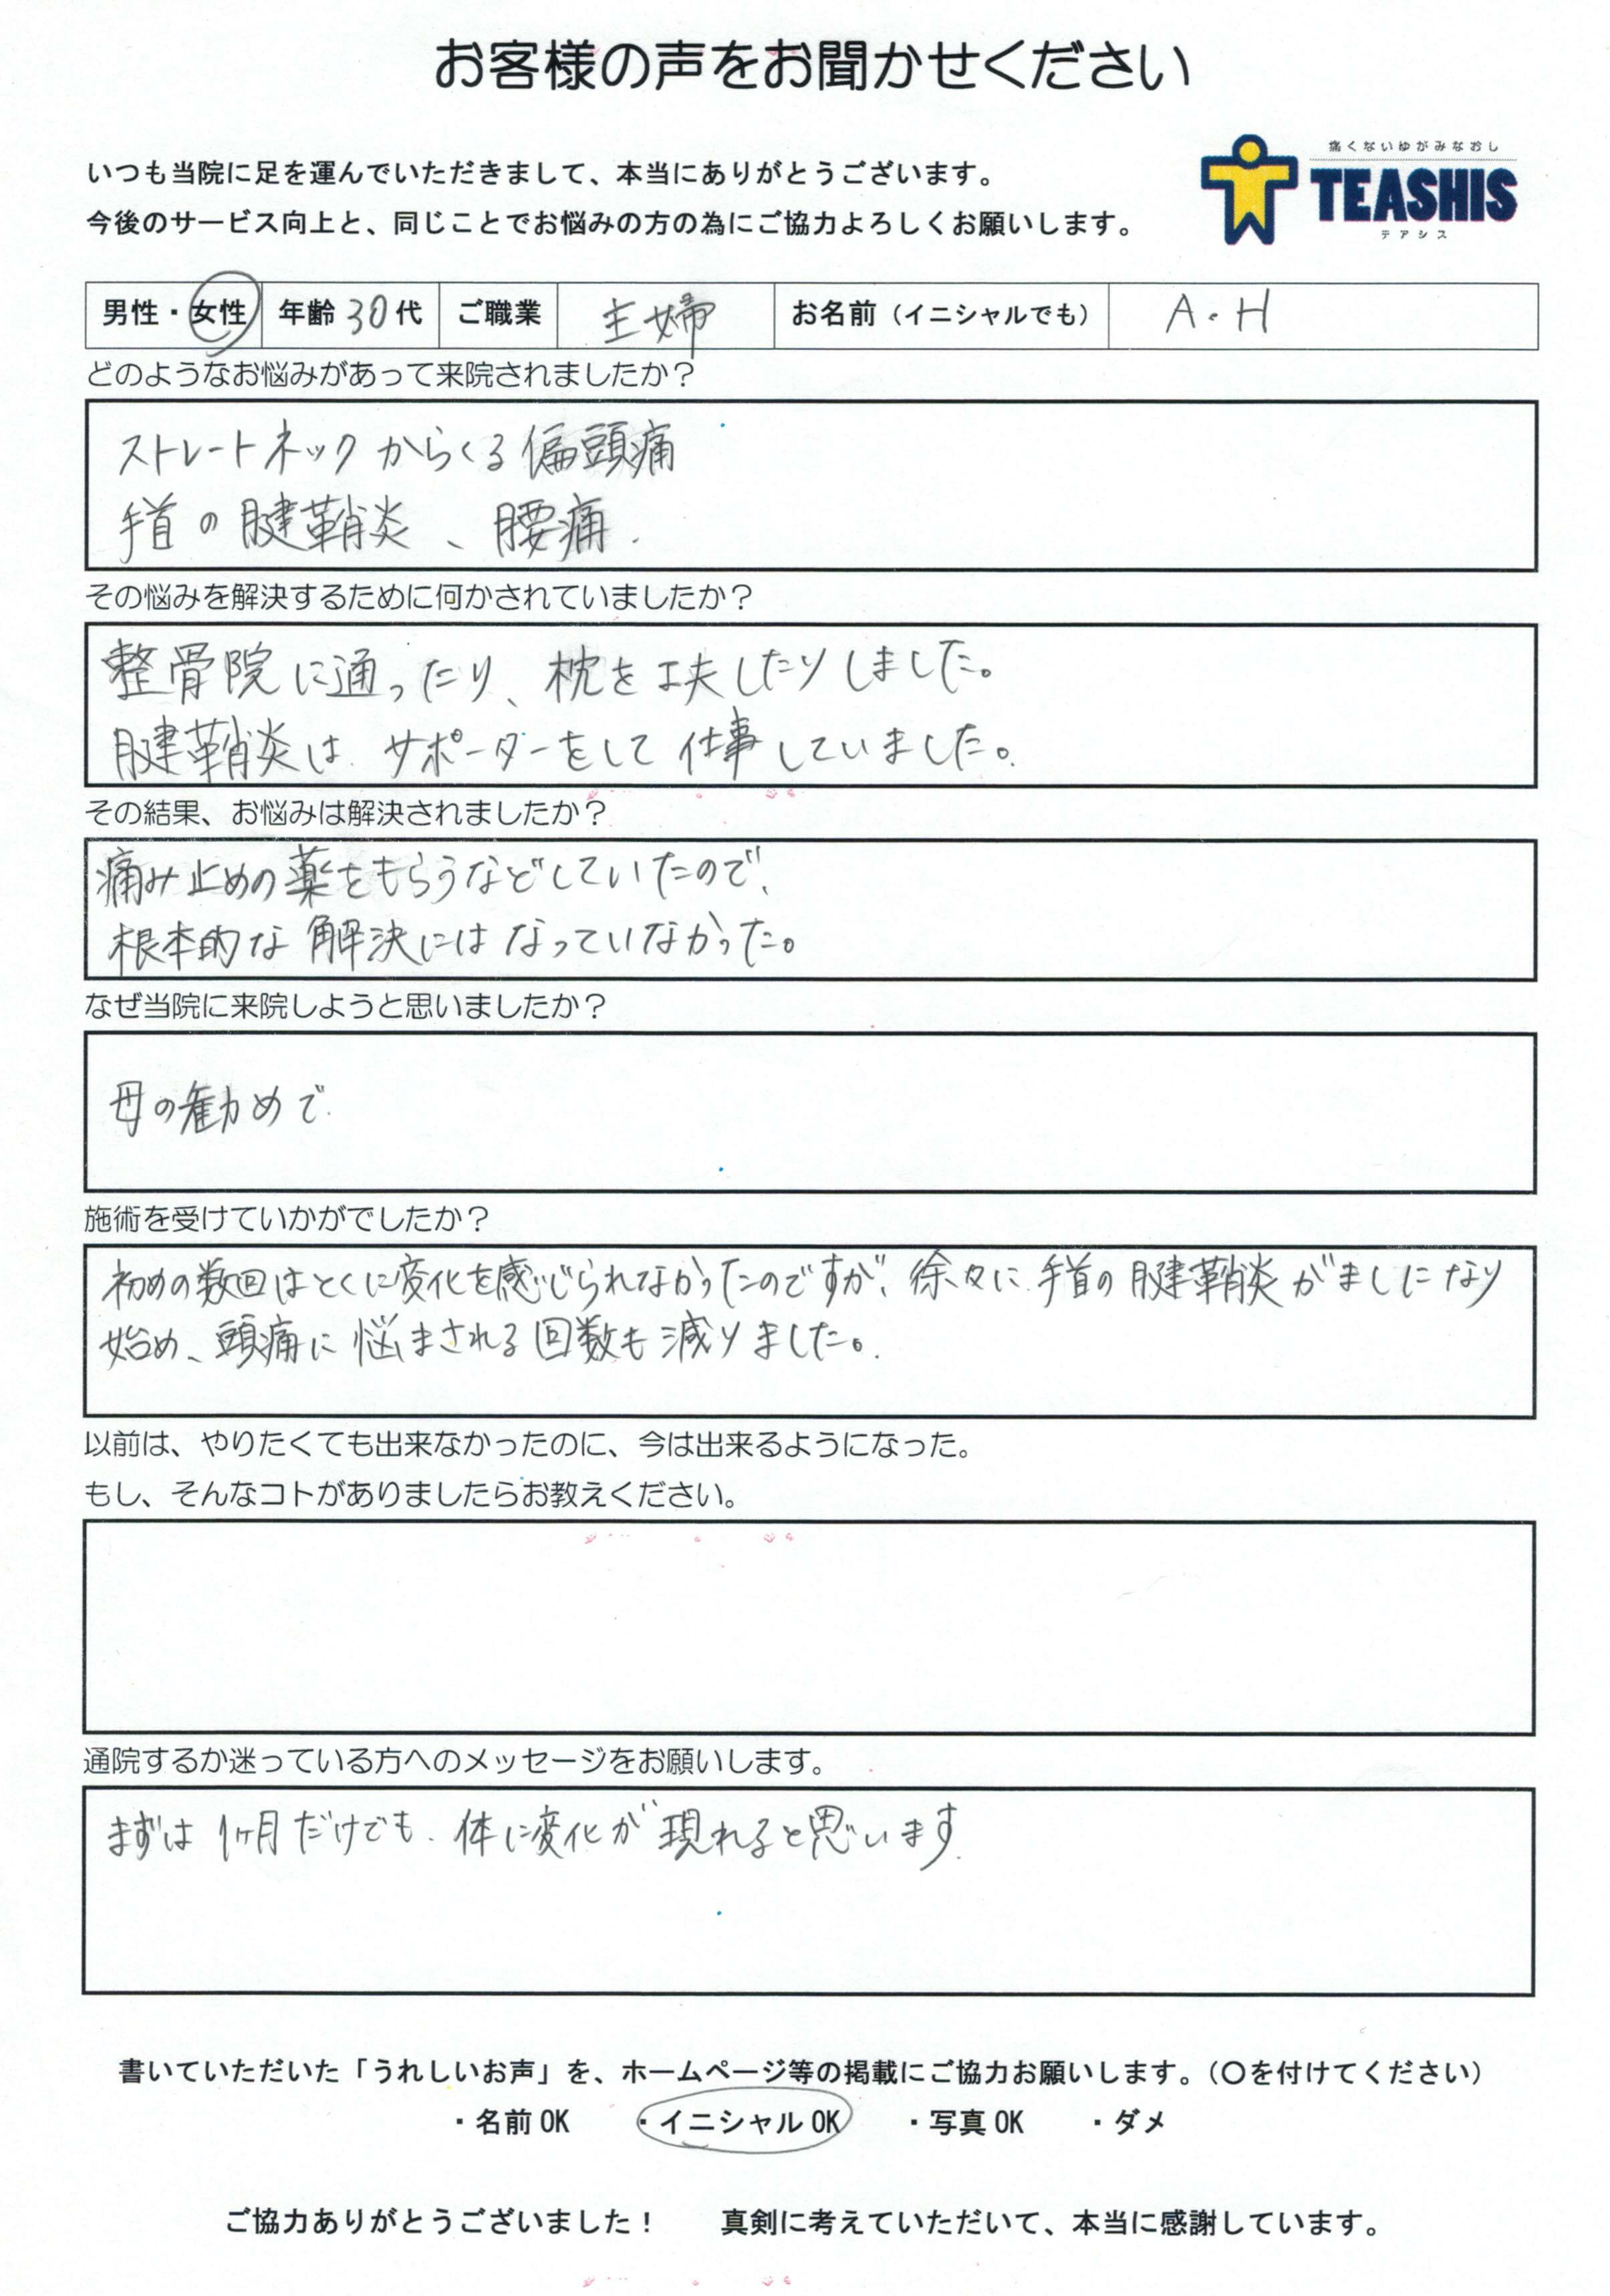 お客様の声をお聞かせください
痛くないゆがみなおし
TEASHIS
テアシス
いつも当院に足を運んでいただきまして、本当にありがとうございます。
今後のサービス向上と、同じことでお悩みの方の為にご協力よろしくお願いします。
男性・女性 年齢 30代 ご職業 主婦 お名前（イニシャルでも） A.H
どのようなお悩みがあって来院されましたか？
ストレートネックからくる偏頭痛
手首の腱鞘炎、腰痛.
その悩みを解決するために何かされていましたか？
整骨院に通ったり、枕を工夫したりしました。
腱鞘炎は サポーターをして仕事していました。
その結果、お悩みは解決されましたか？
痛み止めの薬をもらうなどしていたので、
根本的な解決にはなっていなかった。
なぜ当院に来院しようと思いましたか？
母の勧めで.
施術を受けていかがでしたか？
初めの数回はとくに変化を感じられなかったのですが、徐々に手首の腱鞘炎がましになり
始め、頭痛に悩まされる回数も減りました。
以前は、やりたくても出来なかったのに、今は出来るようになった。
もし、そんなコトがありましたらお教えください。
通院するか迷っている方へのメッセージをお願いします。
まずは1ヶ月だけでも.体に変化が現れると思います.
書いていただいた「うれしいお声」を、ホームページ等の掲載にご協力お願いします。（〇を付けてください）
・名前OK ・イニシャルOK ・写真OK ・ダメ
ご協力ありがとうございました！ 真剣に考えていただいて、本当に感謝しています。